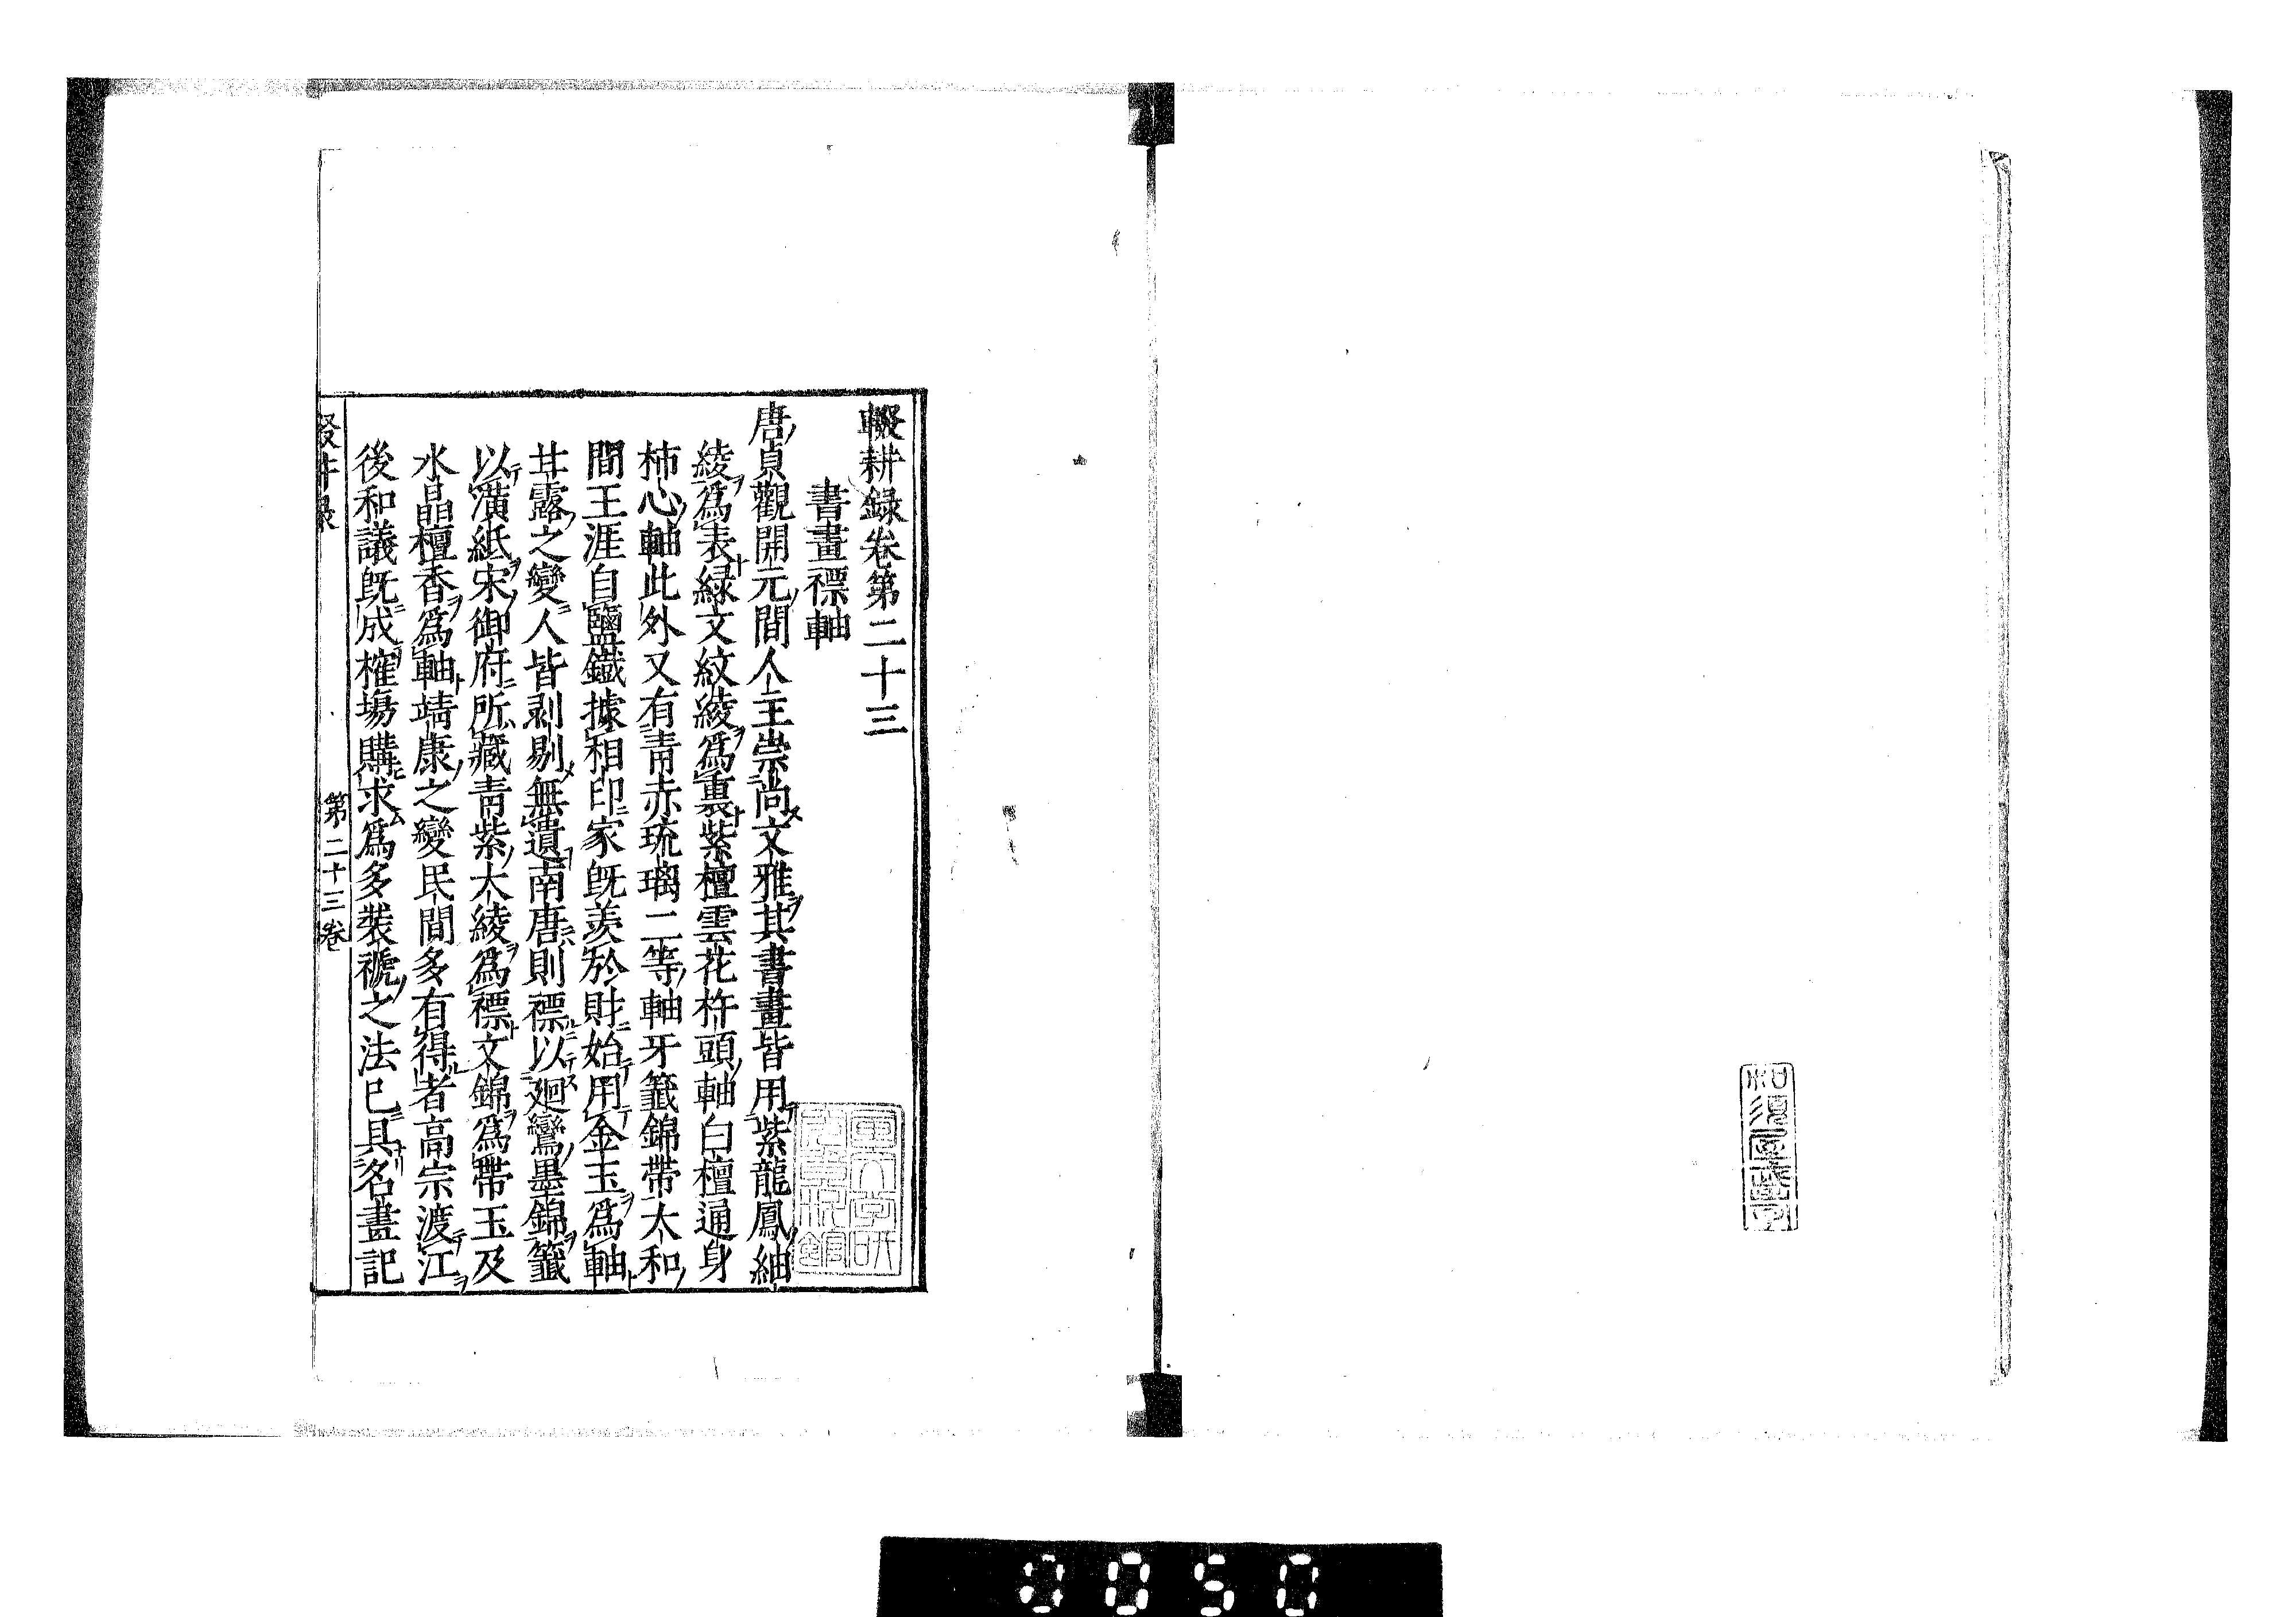 輟耕録卷第二十三
書畫褾軸
唐貞觀開元間人主崇尚文雅其書畫皆用紫龍鳳紬
綾爲表緑文紋綾爲裏紫檀雲花杵頭軸白檀通身
柿心軸此外又有青赤琉璃二等軸牙籤錦帶大和
間王涯自鹽鐵據相印家旣羨於財始用金玉爲軸
甘露之變人皆剥剔無遺南唐則褾以廻鸞墨錦籤
以潢紙宋御府所藏青紫大綾爲褾文錦爲帶玉及
水晶檀香爲軸靖康之變民間多有得者高宗渡江
後和議旣成榷塲購求爲多裝褫之法已具名畫記
第二十三卷
0050